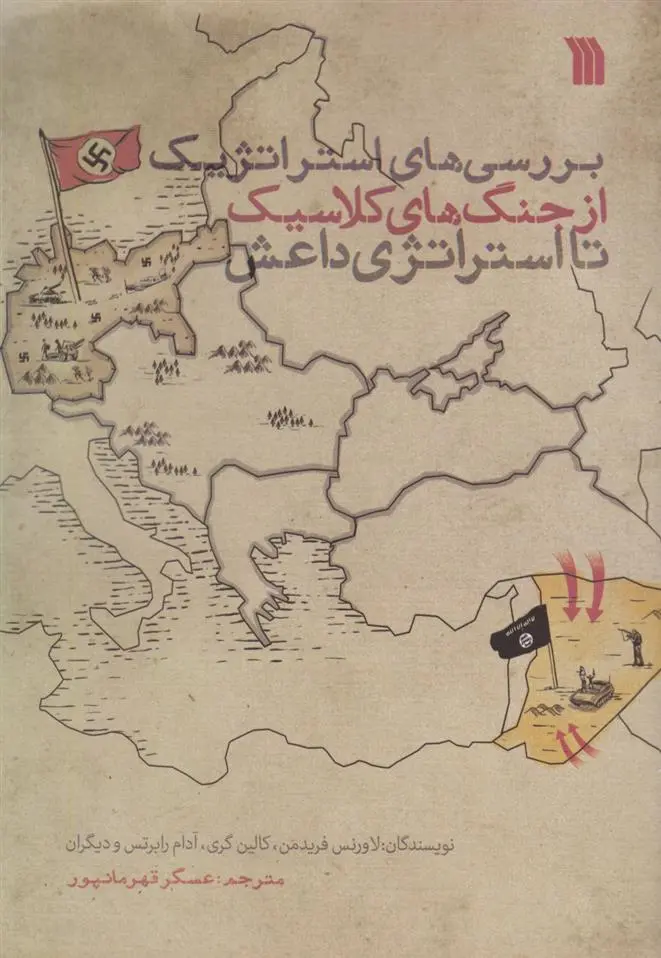 بررسی‌های استراتژیک
از جنگ‌های کلاسیک
تا استراتژی داعش
نویسندگان: لاورنس فریدمن، کالین گری، آدام رابرتس و دیگران
مترجم: عسگر قهرمانپور